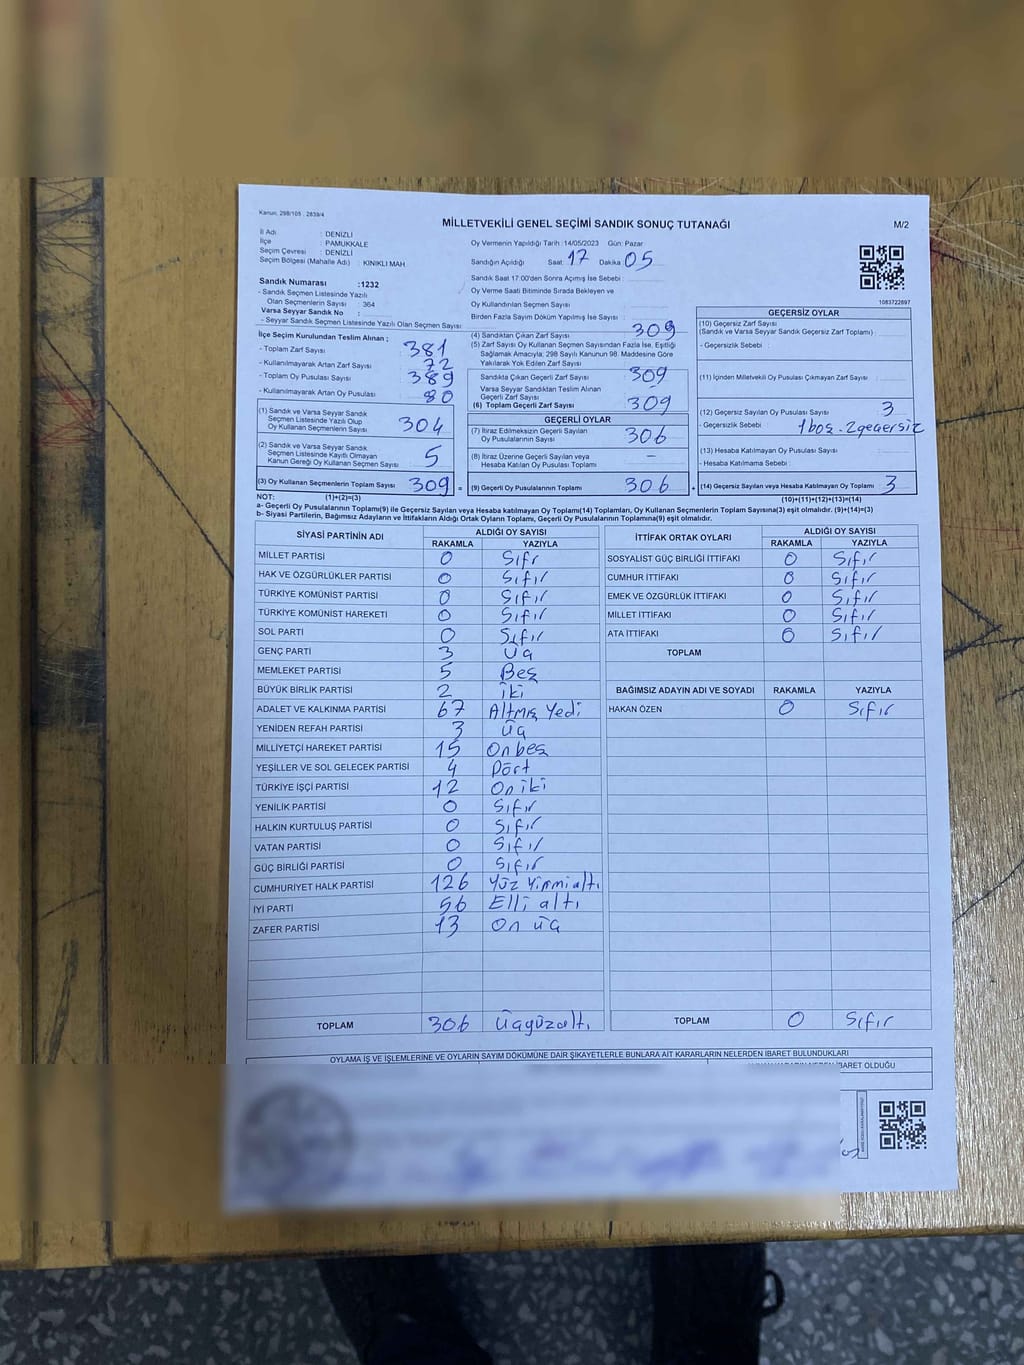 Kanun: 298/105 , 2839/4
MİLLETVEKİLİ GENEL SEÇİMİ SANDIK SONUÇ TUTANAĞI
M/2
İl Adı : DENİZLİ
İlçe : PAMUKKALE
Seçim Çevresi : DENİZLİ
Seçim Bölgesi (Mahalle Adı) : KINIKLI MAH
Sandık Numarası :1232
- Sandık Seçmen Listesinde Yazılı
Olan Seçmenlerin Sayısı : 364
Varsa Seyyar Sandık No :
- Seyyar Sandık Seçmen Listesinde Yazılı Olan Seçmen Sayısı
Oy Vermenin Yapıldığı Tarih :14/05/2023 Gün: Pazar
Sandığın Açıldığı Saat: 17 Dakika 05
Sandık Saat 17:00'den Sonra Açılmış İse Sebebi :
Oy Verme Saati Bitiminde Sırada Bekleyen ve
Oy Kullandırılan Seçmen Sayısı
Birden Fazla Sayım Döküm Yapılmış İse Sayısı :
1083722897
İlçe Seçim Kurulundan Teslim Alınan ;
- Toplam Zarf Sayısı : 381
- Kullanılmayarak Artan Zarf Sayısı : 72
- Toplam Oy Pusulası Sayısı : 389
- Kullanılmayarak Artan Oy Pusulası : 80
(1) Sandık ve Varsa Seyyar Sandık
Seçmen Listesinde Yazılı Olup
Oy Kullanan Seçmenlerin Sayısı : 304
(2) Sandık ve Varsa Seyyar Sandık
Seçmen Listesinde Kayıtlı Olmayan
Kanun Gereği Oy Kullanan Seçmen Sayısı : 5
(3) Oy Kullanan Seçmenlerin Toplam Sayısı : 309 =
(4) Sandıktan Çıkan Zarf Sayısı : 309
(5) Zarf Sayısı Oy Kullanan Seçmen Sayısından Fazla İse, Eşitliği
Sağlamak Amacıyla; 298 Sayılı Kanunun 98. Maddesine Göre
Yakılarak Yok Edilen Zarf Sayısı :
Sandıkta Çıkan Geçerli Zarf Sayısı : 309
Varsa Seyyar Sandıktan Teslim Alınan
Geçerli Zarf Sayısı : –
(6) Toplam Geçerli Zarf Sayısı : 309
GEÇERLİ OYLAR
(7) İtiraz Edilmeksizin Geçerli Sayılan
Oy Pusulalarının Sayısı : 306
(8) İtiraz Üzerine Geçerli Sayılan veya
Hesaba Katılan Oy Pusulası Toplamı : –
(9) Geçerli Oy Pusulalarının Toplamı : 306 +
GEÇERSİZ OYLAR
(10) Geçersiz Zarf Sayısı
(Sandık ve Varsa Seyyar Sandık Geçersiz Zarf Toplamı) :
- Geçersizlik Sebebi :
(11) İçinden Milletvekili Oy Pusulası Çıkmayan Zarf Sayısı :
(12) Geçersiz Sayılan Oy Pusulası Sayısı : 3
- Geçersizlik Sebebi : 1 boş - 2 geçersiz
(13) Hesaba Katılmayan Oy Pusulası Sayısı :
- Hesaba Katılmama Sebebi :
(14) Geçersiz Sayılan veya Hesaba Katılmayan Oy Toplamı : 3
NOT: (1)+(2)=(3)
(10)+(11)+(12)+(13)=(14)
a- Geçerli Oy Pusulalarının Toplamı(9) ile Geçersiz Sayılan veya Hesaba katılmayan Oy Toplamı(14) Toplamları, Oy Kullanan Seçmenlerin Toplam Sayısına(3) eşit olmalıdır. (9)+(14)=(3)
b- Siyasi Partilerin, Bağımsız Adayların ve İttifakların Aldığı Ortak Oyların Toplamı, Geçerli Oy Pusulalarının Toplamına(9) eşit olmalıdır.
SİYASİ PARTİNİN ADI ALDIĞI OY SAYISI
RAKAMLA YAZIYLA
MİLLET PARTİSİ 0 Sıfır
HAK VE ÖZGÜRLÜKLER PARTİSİ 0 Sıfır
TÜRKİYE KOMÜNİST PARTİSİ 0 Sıfır
TÜRKİYE KOMÜNİST HAREKETİ 0 Sıfır
SOL PARTİ 0 Sıfır
GENÇ PARTİ 3 Üç
MEMLEKET PARTİSİ 5 Beş
BÜYÜK BİRLİK PARTİSİ 2 İki
ADALET VE KALKINMA PARTİSİ 67 Altmış Yedi
YENİDEN REFAH PARTİSİ 3 Üç
MİLLİYETÇİ HAREKET PARTİSİ 15 Onbeş
YEŞİLLER VE SOL GELECEK PARTİSİ 4 Dört
TÜRKİYE İŞÇİ PARTİSİ 12 On iki
YENİLİK PARTİSİ 0 Sıfır
HALKIN KURTULUŞ PARTİSİ 0 Sıfır
VATAN PARTİSİ 0 Sıfır
GÜÇ BİRLİĞİ PARTİSİ 0 Sıfır
CUMHURİYET HALK PARTİSİ 126 Yüz Yirmi altı
İYİ PARTİ 56 Elli altı
ZAFER PARTİSİ 13 On üç
TOPLAM 306 Üçyüzaltı
İTTİFAK ORTAK OYLARI ALDIĞI OY SAYISI
RAKAMLA YAZIYLA
SOSYALIST GÜÇ BİRLİĞİ İTTİFAKI 0 Sıfır
CUMHUR İTTİFAKI 0 Sıfır
EMEK VE ÖZGÜRLÜK İTTİFAKI 0 Sıfır
MİLLET İTTİFAKI 0 Sıfır
ATA İTTİFAKI 0 Sıfır
TOPLAM
BAĞIMSIZ ADAYIN ADI VE SOYADI RAKAMLA YAZIYLA
HAKAN ÖZEN 0 Sıfır
TOPLAM 0 Sıfır
OYLAMA İŞ VE İŞLEMLERİNE VE OYLARIN SAYIM DÖKÜMÜNE DAİR ŞİKAYETLERLE BUNLARA AİT KARARLARIN NELERDEN İBARET BULUNDUKLARI
İBARET OLDUĞU